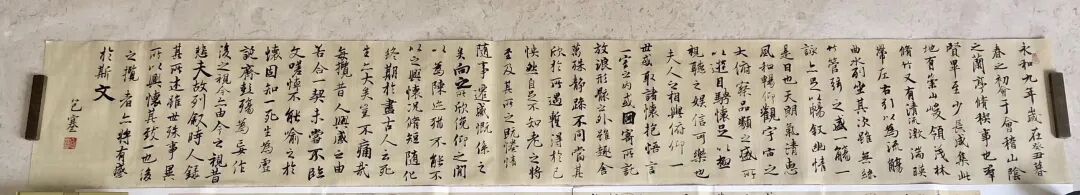 永和九年歲在癸丑暮
春之初會于會稽山陰
之蘭亭脩稧事也羣
賢畢至少長咸集此
地有崇山峻領茂林
脩竹又有清流激湍暎
帶左右引以為流觴
曲水列坐其次雖無絲
竹管弦之盛一觴一
詠亦足以暢叙幽情
是日也天朗氣清惠
風和暢仰觀宇宙之
大俯察品類之盛所
以遊目騁懷足以極
視聽之娛信可樂也
夫人之相與俯仰一
世或取諸懷抱悟言
一室之内或因寄所託
放浪形骸之外雖趣舍
萬殊静躁不同當其
欣於所遇暫得於己
怏然自足不知老之將
至及其所之既惓情
隨事遷感慨係之
矣向之所欣俛仰之閒
以為陳迹猶不能不
以之興懷況脩短隨化
終期於盡古人云死
生亦大矣豈不痛哉
每攬昔人興感之由
若合一契未嘗不臨
文嗟悼不能喻之於
懷固知一死生為虛
誕齊彭殤為妄作
後之視今亦由今之視昔
悲夫故列叙時人錄
其所述雖世殊事異
所以興懷其致一也後
之攬者亦將有感
於斯文